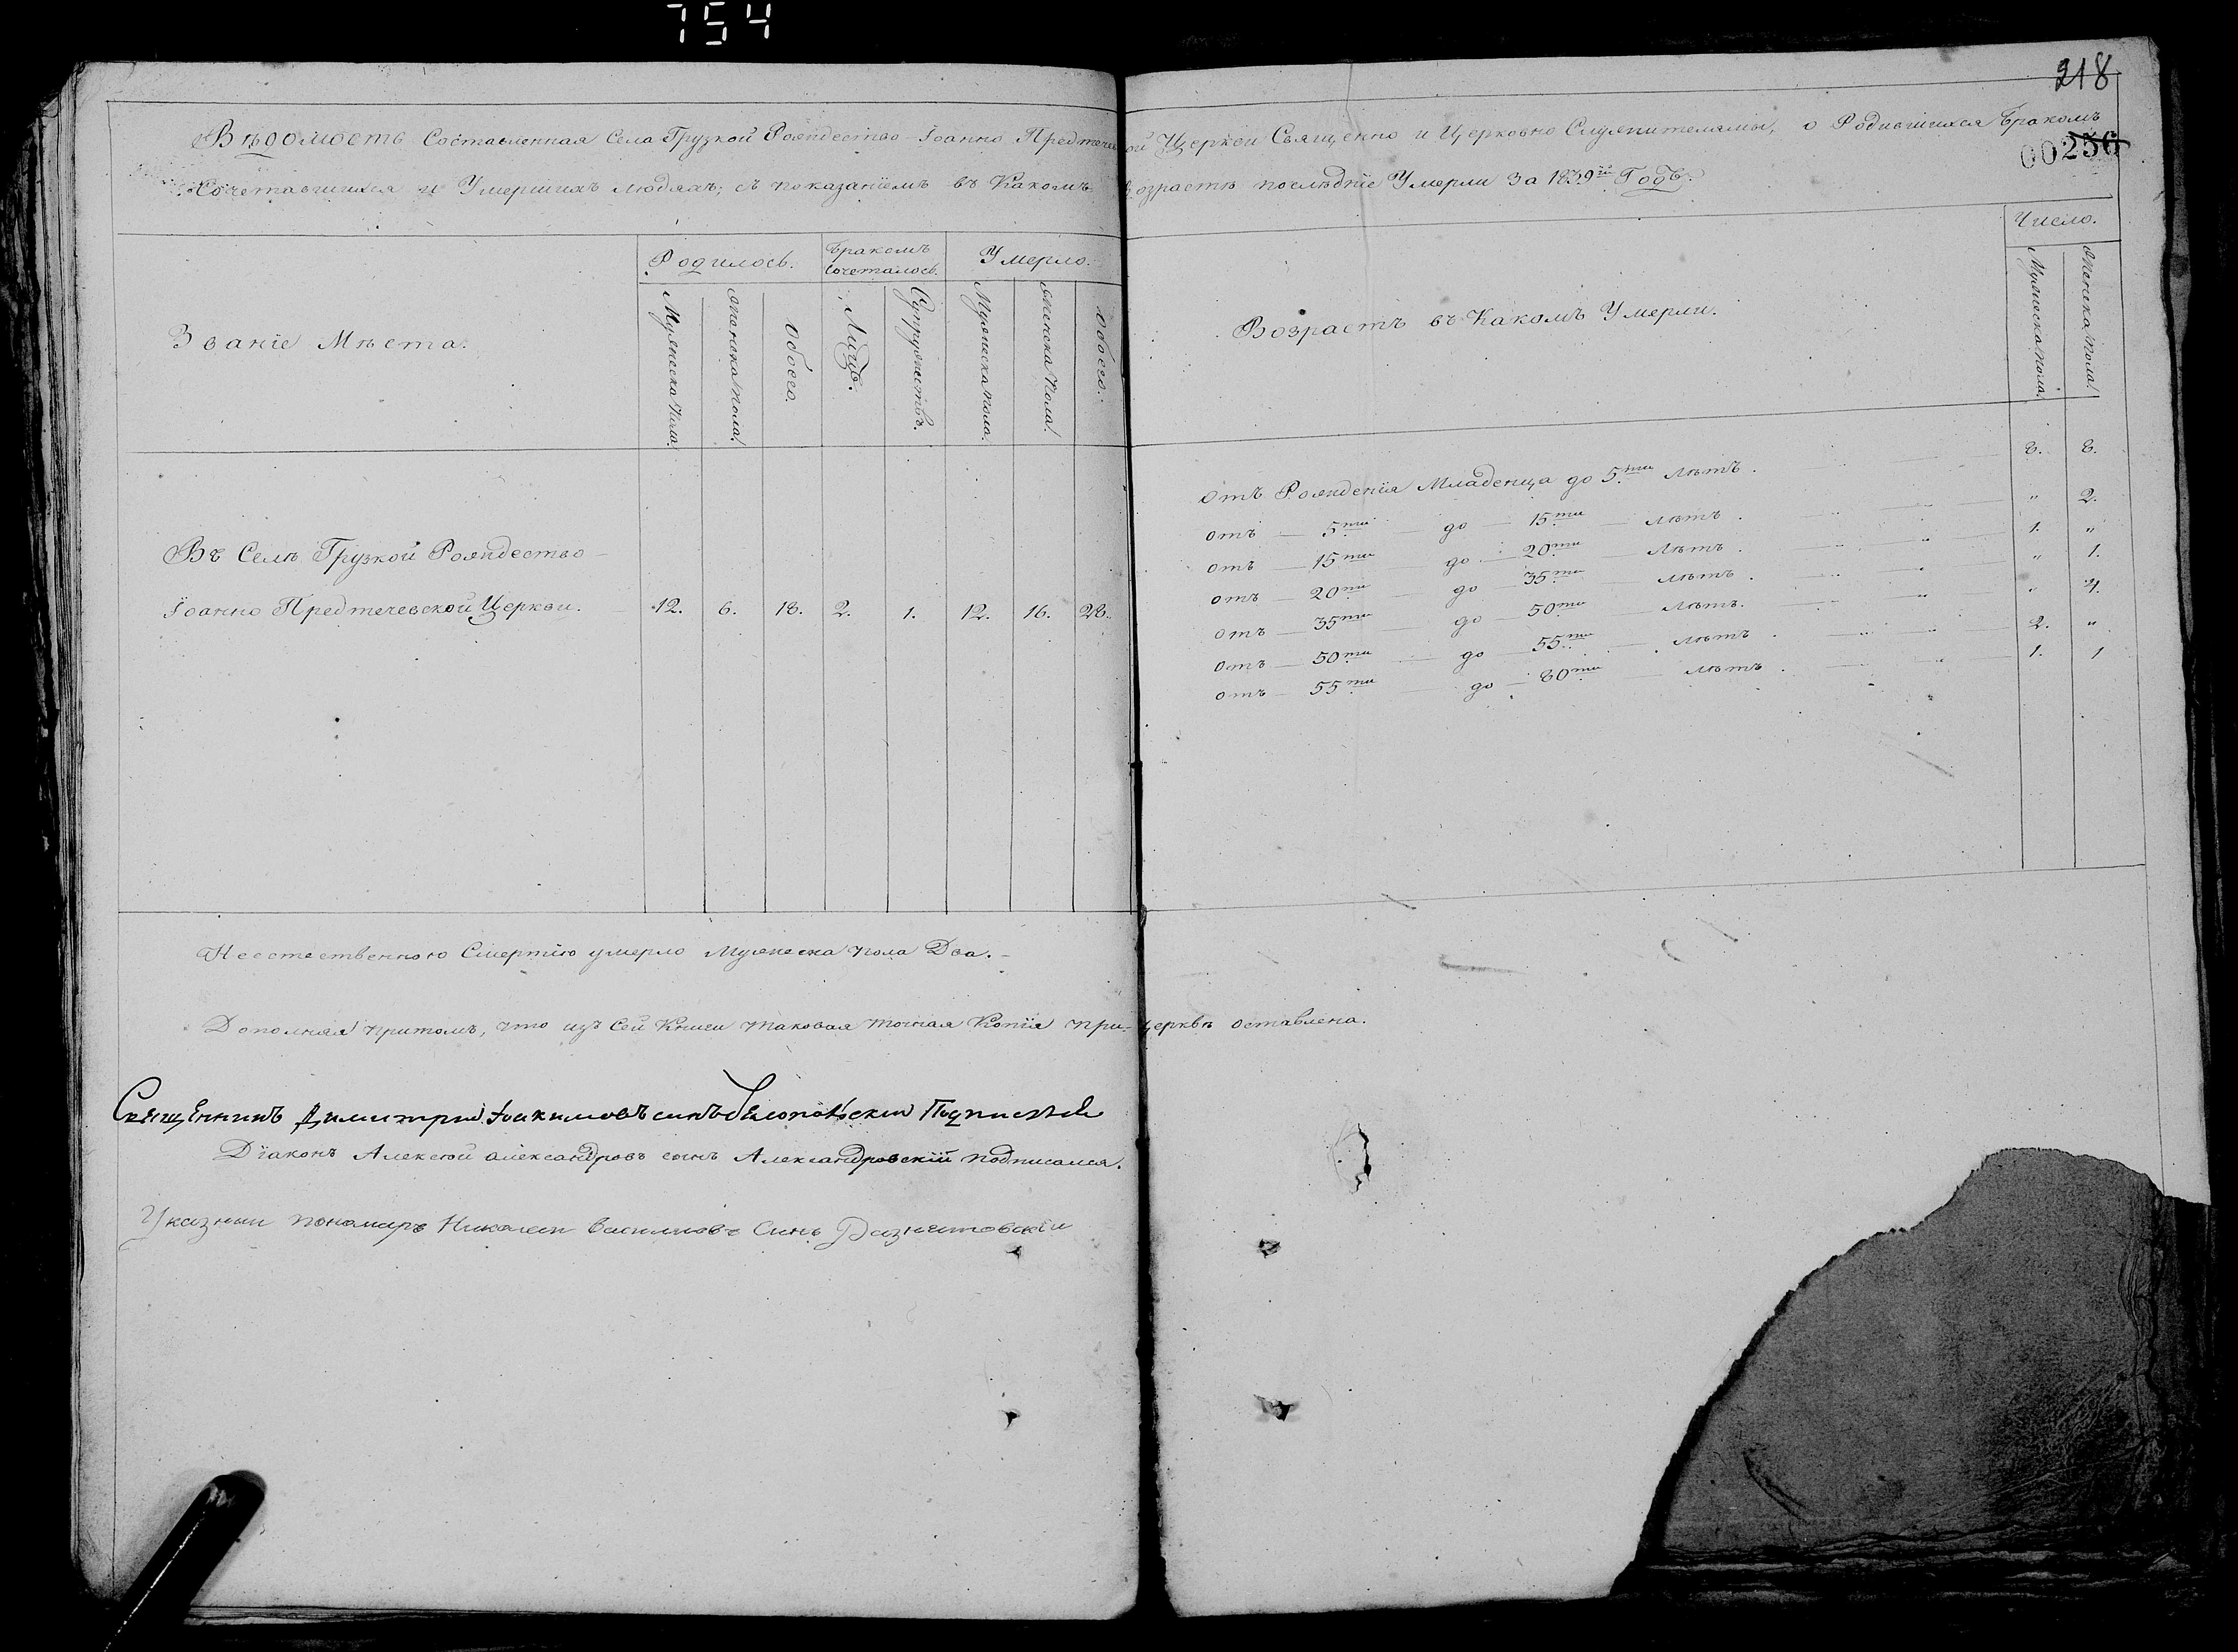 754
218
Вѣдомость Составленная Села Грузкой Рождество-Іоанно Предтечевской Церкви Священно и Церковно Служителями, о Родившихся Бракомъ
00256
Сочетавшихся и Умершихъ людяхъ; съ показаніемъ въ Какомъ возрастѣ послѣдніе Умерли За 1839й Годъ.
Званіе Мѣста.
Родилось.
Бракомъ Сочеталось.
Умерло.
Мужеска Пола.
Женска пола.
Обоего.
Лицъ.
Супружествъ.
Мужеска пола.
Женска Пола.
Обоего.
Возрастъ въ Какомъ Умерли.
Число.
Мужеска пола.
Женска пола.
Въ Селѣ Грузкой Рождество-
Іоанно Предтечевской Церкви. 12. 6. 18. 2. 1. 12. 16. 28.
Отъ Рожденія Младенца до 5ти лѣтъ. 8. 8.
отъ 5ти до 15ти лѣтъ. " 2.
отъ 15ти до 20ти лѣтъ. 1. "
отъ 20ти до 35ти лѣтъ. " 1.
отъ 35ти до 50ти лѣтъ. " 4.
отъ 50ти до 55ти лѣтъ. 2. "
отъ 55ти до 80ти лѣтъ. 1. 1
Неестественною Смертію умерло Мужеска пола Два.-
Дополняя притомъ, что изъ Сей Книги таковая точная Копія при Церквѣ оставлена.
Священникъ Димитрий Іоакимовъ синъ Подписался
Діаконъ Алексій александровъ сынъ Александровскій подписался.
Указный пономарь Николай Василиовъ Синъ